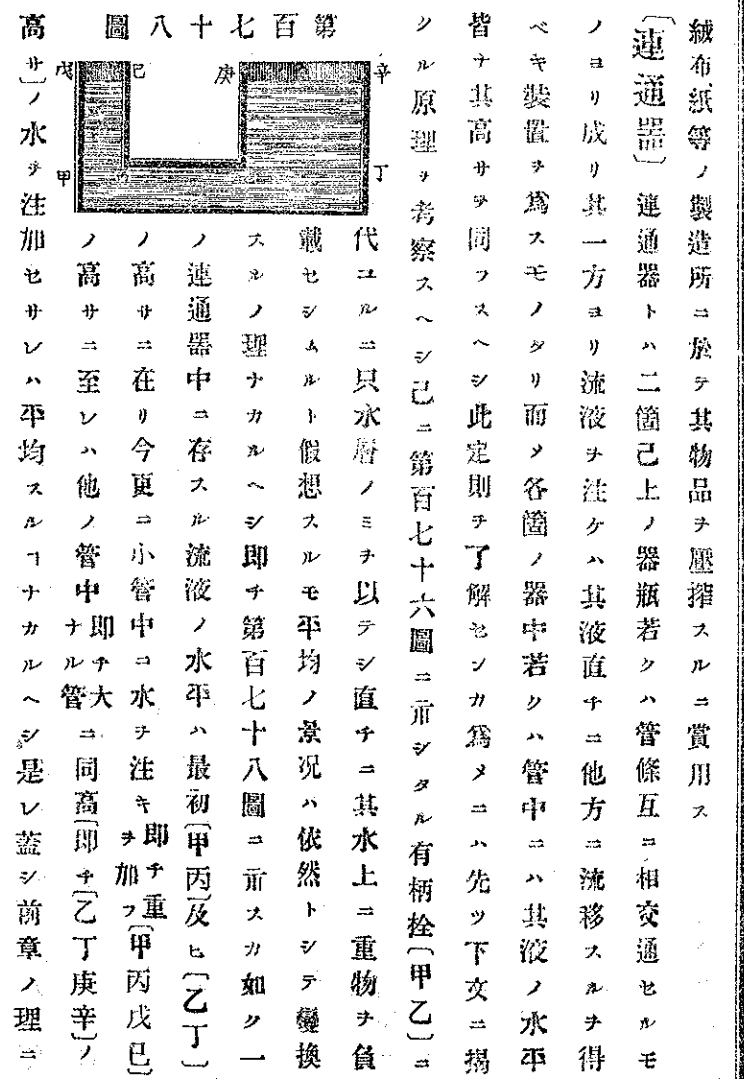 絨布紙等ノ製造所ニ於テ其物品ヲ壓搾スルニ賞用ス
〔連通器〕連通器トハ二箇已上ノ器瓶若クハ管條互ニ相交通セルモ
ノヨリ成リ其一方ヨリ流液ヲ注ケハ其液直チニ他方ニ流移スルヲ得
ベキ裝置ヲ爲スモノタリ而メ各箇ノ器中若クハ管中ニハ其液ノ水平
皆ナ其高サヲ同フスヘシ此定則ヲ了解センカ爲メニハ先ツ下文ニ揭
クル原理ヲ考察スヘシ已ニ第百七十六圖ニ示シタル有柄栓〔甲乙〕ニ
代ユルニ只水層ノミヲ以テシ直チニ其水上ニ重物ヲ負
載セシムルト假想スルモ平均ノ景况ハ依然トシテ變換
スルノ理ナカルヘシ即チ第百七十八圖ニ示スカ如ク一
ノ連通器中ニ存スル流液ノ水平ハ最初〔甲丙〕及ヒ〔乙丁〕
ノ高サニ在リ今更ニ小管中ニ水ヲ注キ即チ重ヲ加フ〔甲丙戊己〕
ノ高サニ至レハ他ノ管中即チ大ナル管ニ同高〔即チ〔乙丁庚辛〕ノ
高サ〕ノ水ヲ注加セサレハ平均スルヿナカルヘシ是レ蓋シ前章ノ理ニ
第百七十八圖
辛
庚
己
戊
丁
甲